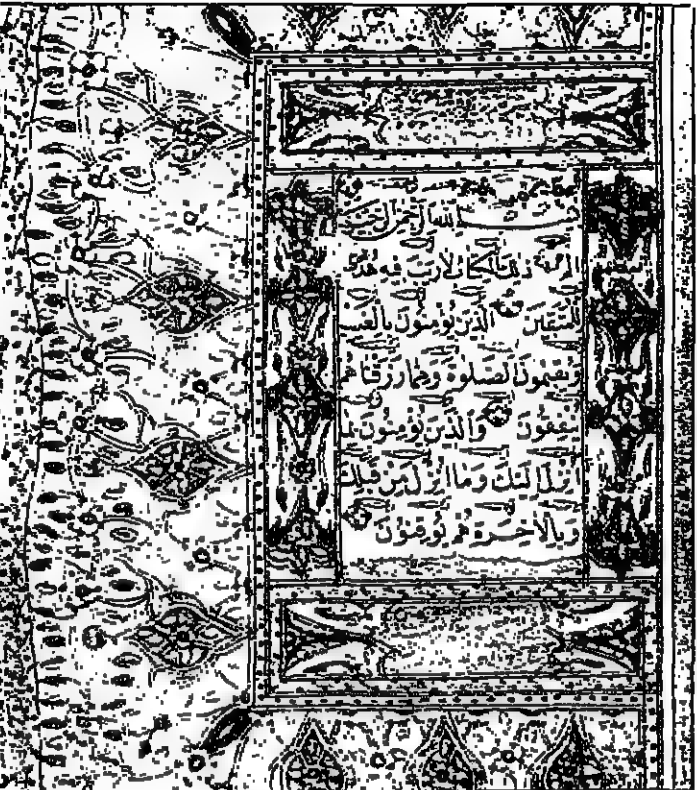 الله الرحمن الرحيم
الم ذلك الكتاب لا ريب فيه هدى
للمتقين الذين يؤمنون بالغيب
ويقيمون الصلوة ومما رزقناهم
ينفقون والذين يؤمنون بما
انزل اليك وما انزل من قبلك
وبالاخرة هم يوقنون